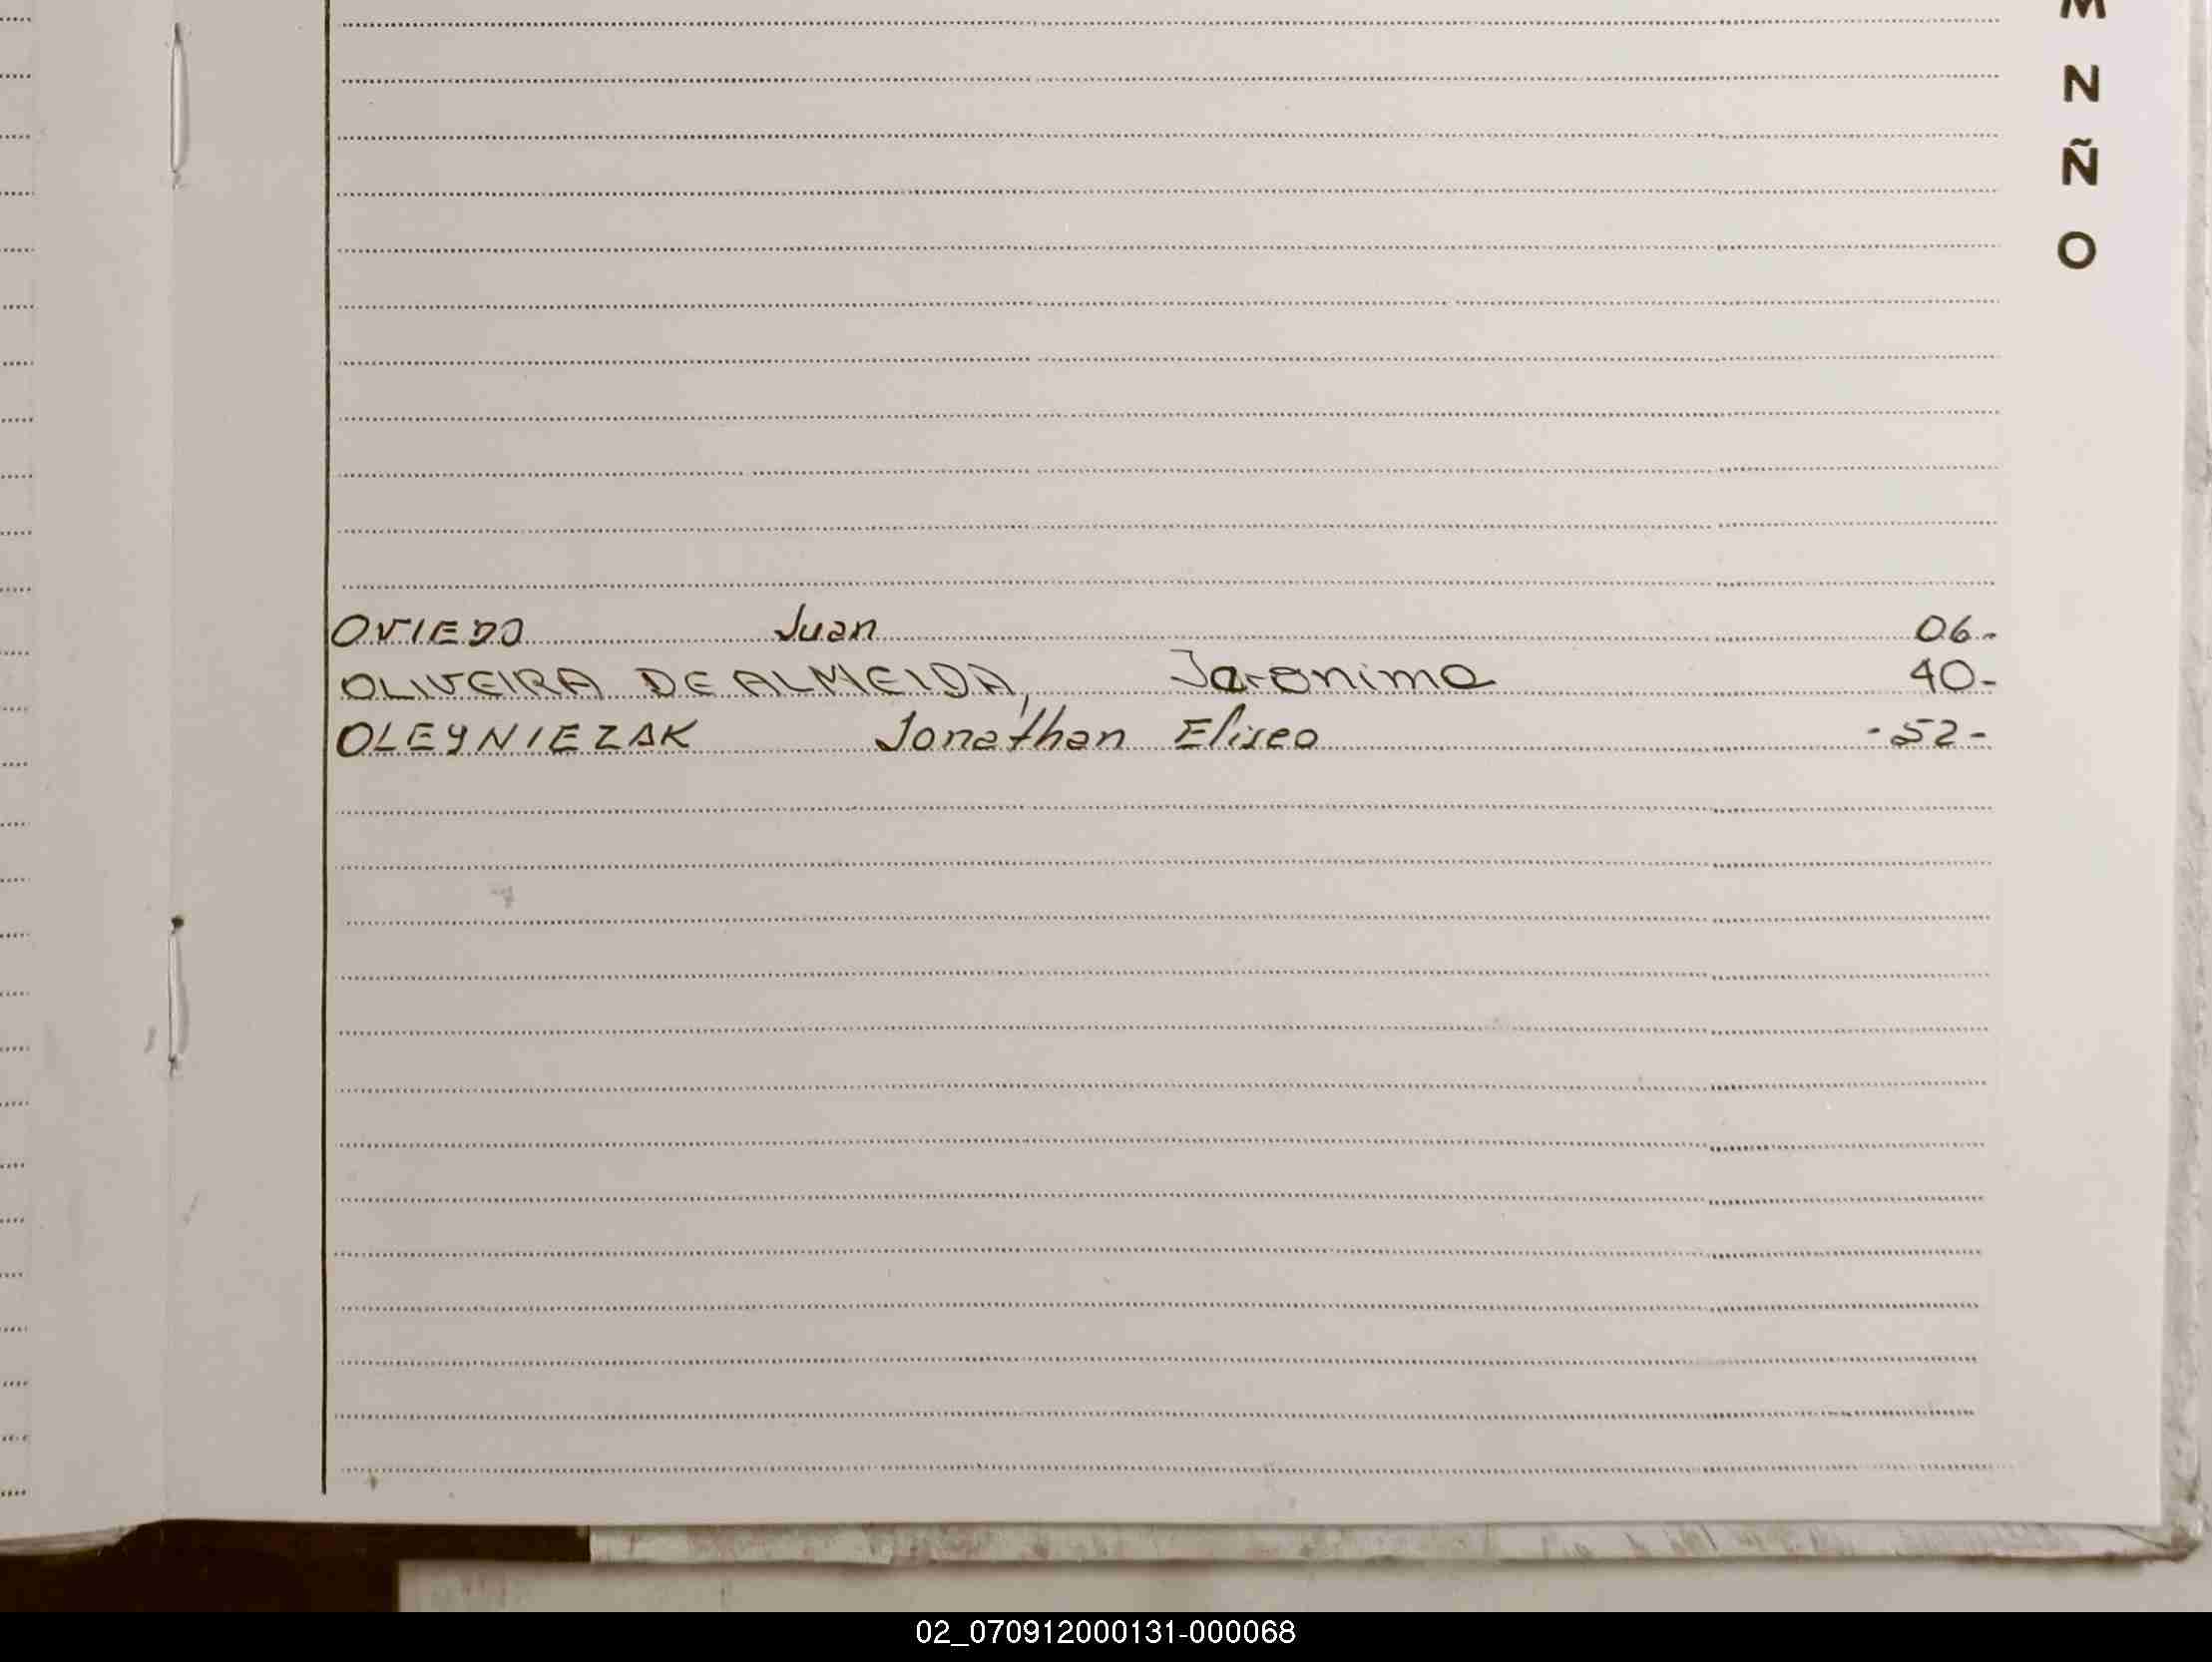 M
N
Ñ
O
OVIEDO Juan 06-
OLIVEIRA DE ALMEIDA, Jaronimo 40-
OLEYNIEZAK Jonathan Eliseo -52-
02_070912000131-000068